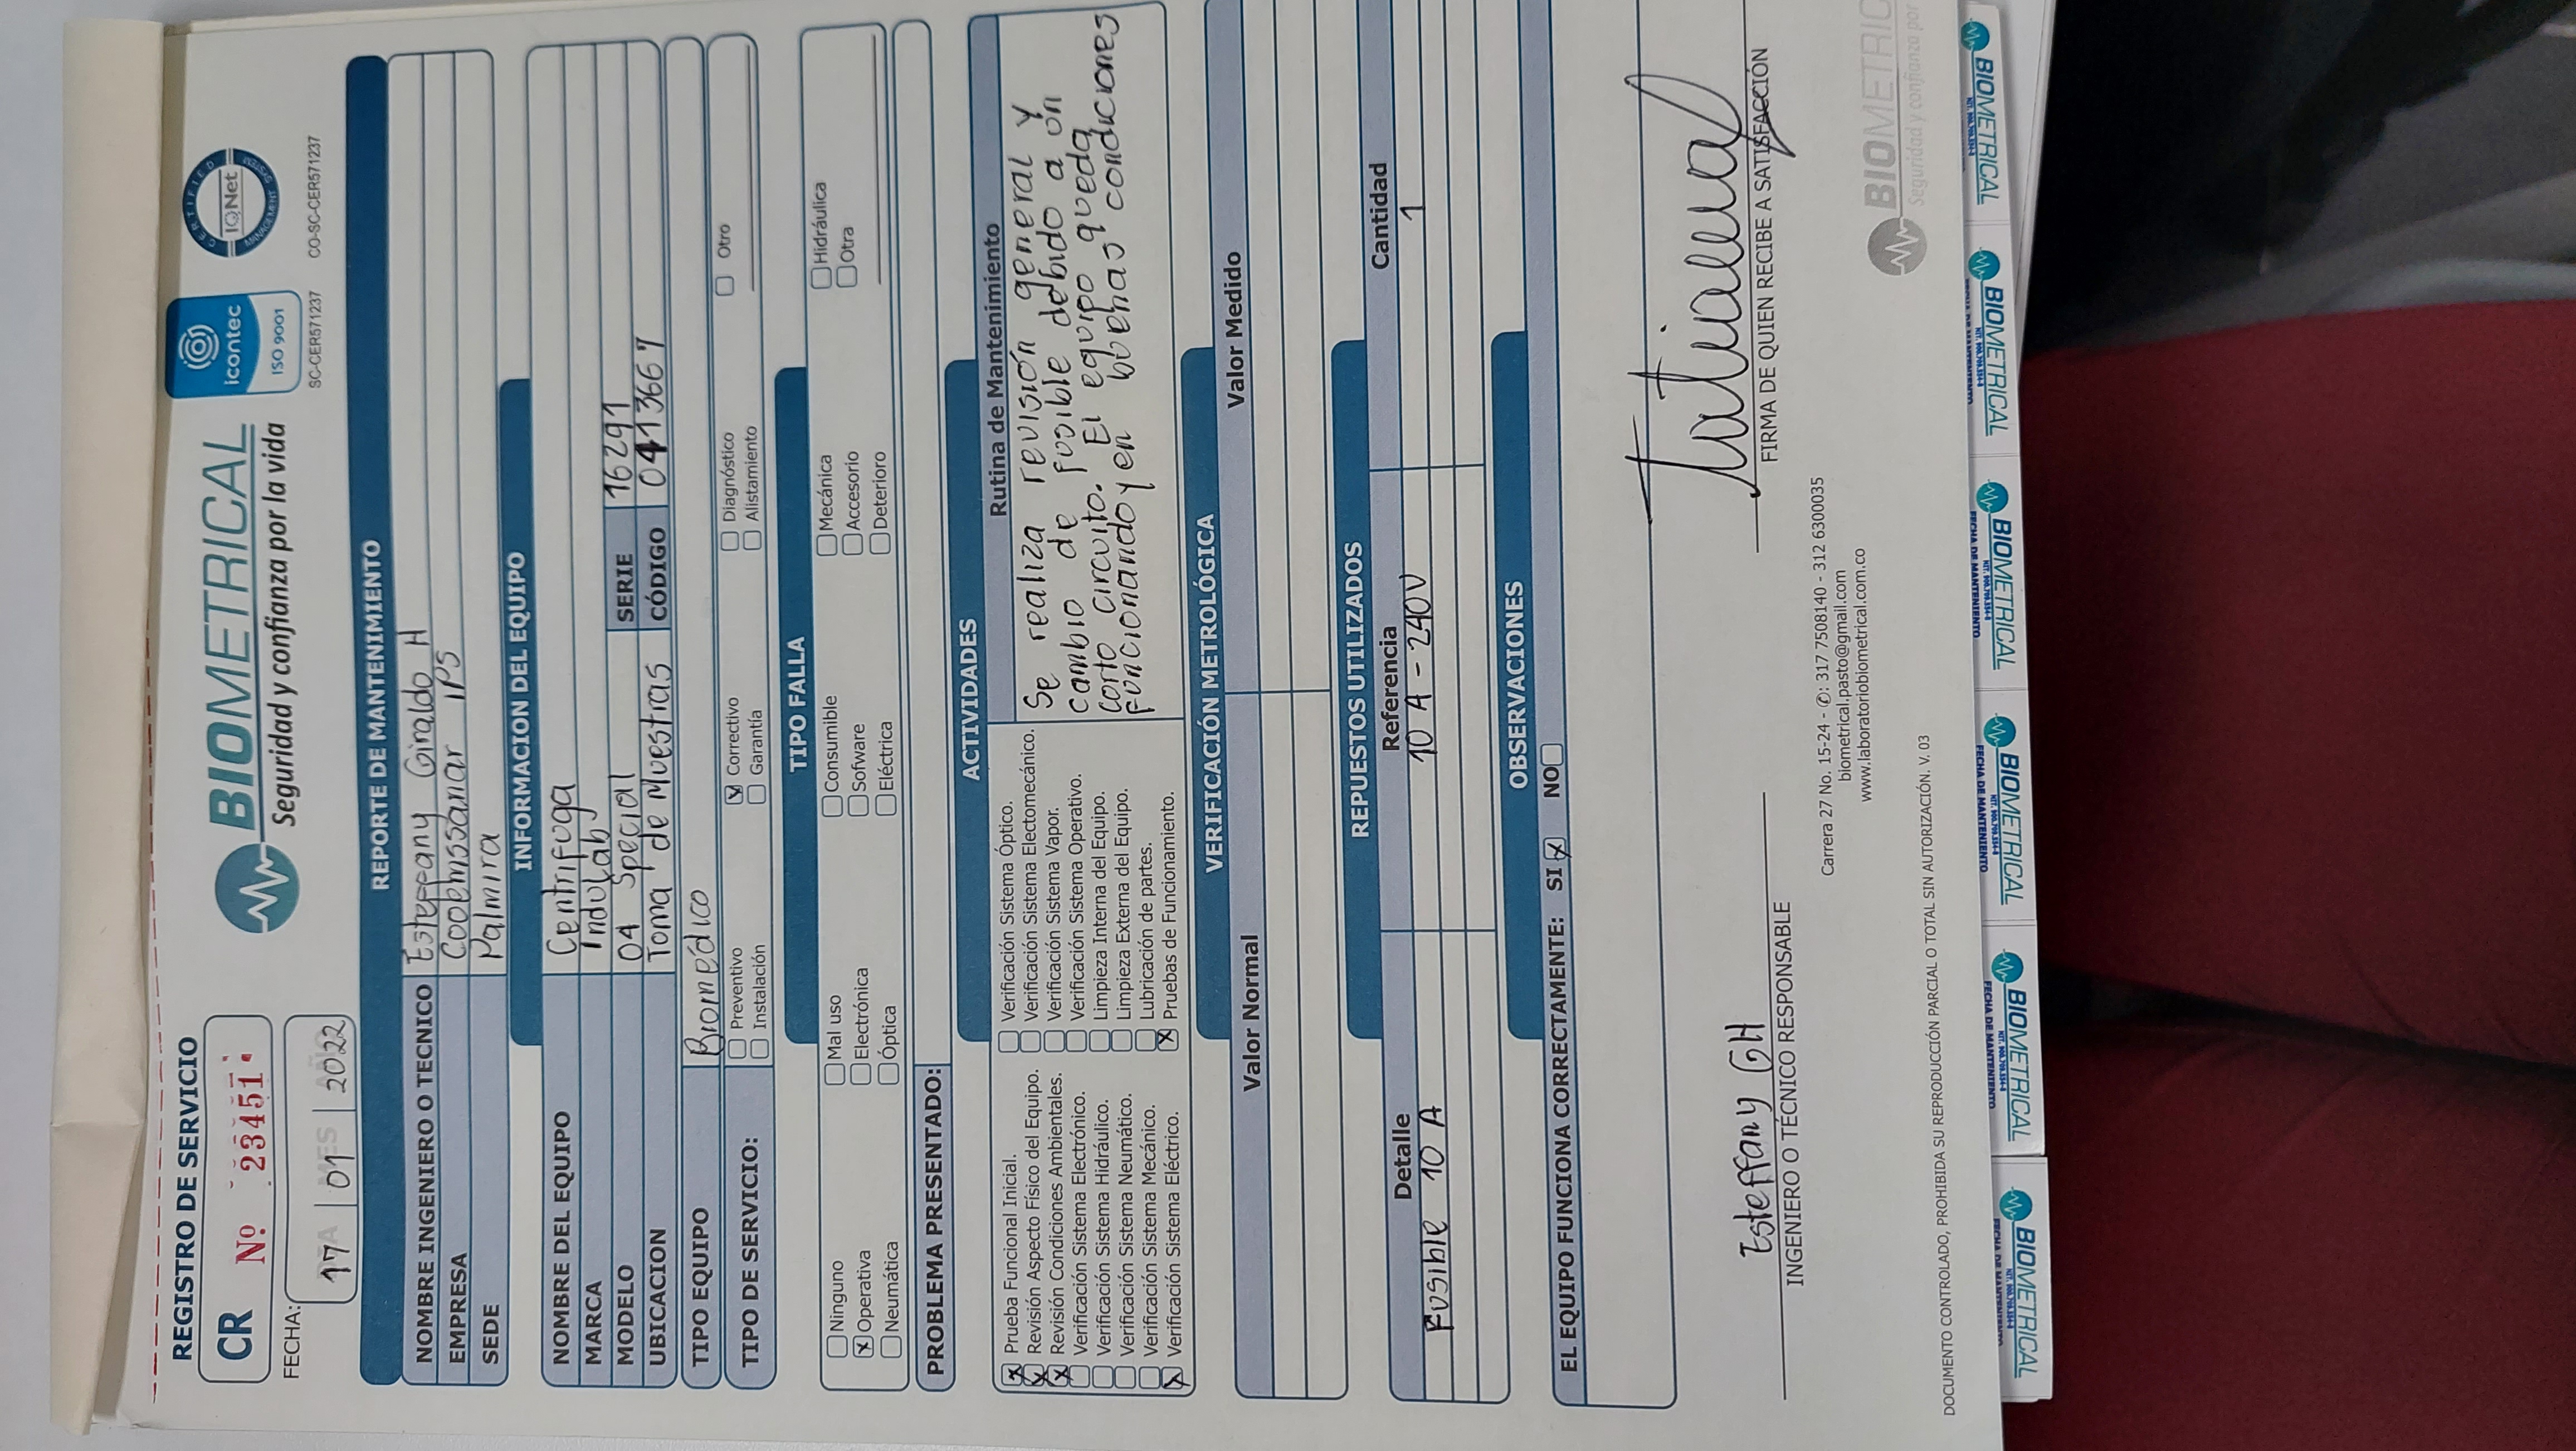 REGISTRO DE SERVICIO
CR Nº 23451
FECHA: 17 01 2022
BIOMETRICAL
Seguridad y confianza por la vida
icontec
ISO 9001
SC-CER571237
CERTIFIED
IQNet
MANAGEMENT SYSTEM
CO-SC-CER571237
REPORTE DE MANTENIMIENTO
NOMBRE INGENIERO O TECNICO Esteffany Giraldo H
EMPRESA Cooemssanar IPS
SEDE Palmira
INFORMACION DEL EQUIPO
NOMBRE DEL EQUIPO Centrifuga
MARCA Indulab
MODELO 04 Special SERIE 16291
UBICACION Toma de Muestras CÓDIGO 0413667
TIPO EQUIPO Biomédico
TIPO DE SERVICIO:
Preventivo Correctivo Diagnóstico Otro
Instalación Garantía Alistamiento
TIPO FALLA
Ninguno Mal uso Consumible Mecánica Hidráulica
Operativa Electrónica Sofware Accesorio Otra
Neumática Óptica Eléctrica Deterioro
PROBLEMA PRESENTADO:
ACTIVIDADES
Prueba Funcional Inicial.
Revisión Aspecto Físico del Equipo.
Revisión Condiciones Ambientales.
Verificación Sistema Electrónico.
Verificación Sistema Hidráulico.
Verificación Sistema Neumático.
Verificación Sistema Mecánico.
Verificación Sistema Eléctrico.
Verificación Sistema Óptico.
Verificación Sistema Electomecánico.
Verificación Sistema Vapor.
Verificación Sistema Operativo.
Limpieza Interna del Equipo.
Limpieza Externa del Equipo.
Lubricación de partes.
Pruebas de Funcionamiento.
Rutina de Mantenimiento
Se realiza revisión general y
cambio de fusible debido a un
corto circuito. El equipo queda
funcionando y en buenas condiciones
VERIFICACIÓN METROLÓGICA
Valor Normal Valor Medido
REPUESTOS UTILIZADOS
Detalle Referencia Cantidad
Fusible 10 A 10 A - 240V 1
OBSERVACIONES
EL EQUIPO FUNCIONA CORRECTAMENTE: SI NO
Esteffany GH
INGENIERO O TÉCNICO RESPONSABLE
Tatiana
FIRMA DE QUIEN RECIBE A SATISFACCIÓN
Carrera 27 No. 15-24 - ✆: 317 7508140 - 312 6300035
biometrical.pasto@gmail.com
www.laboratoriobiometrical.com.co
BIOMETRIC
Seguridad y confianza por
DOCUMENTO CONTROLADO, PROHIBIDA SU REPRODUCCIÓN PARCIAL O TOTAL SIN AUTORIZACIÓN. V. 03
FECHA DE MANTENIMIENTO
BIOMETRICAL
BIOMETRICAL
BIOMETRICAL
BIOMETRICAL
BIOMETRICAL
BIOMETRICAL